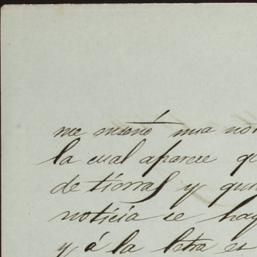 me mandó una no
la cual aparece q
de tierras y qu
noticia se hay
y á la letra es